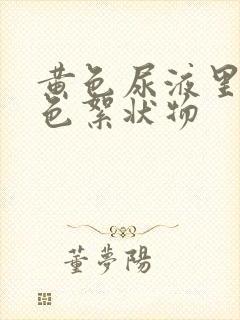 黄色尿液里
色絮状物
董夢陽